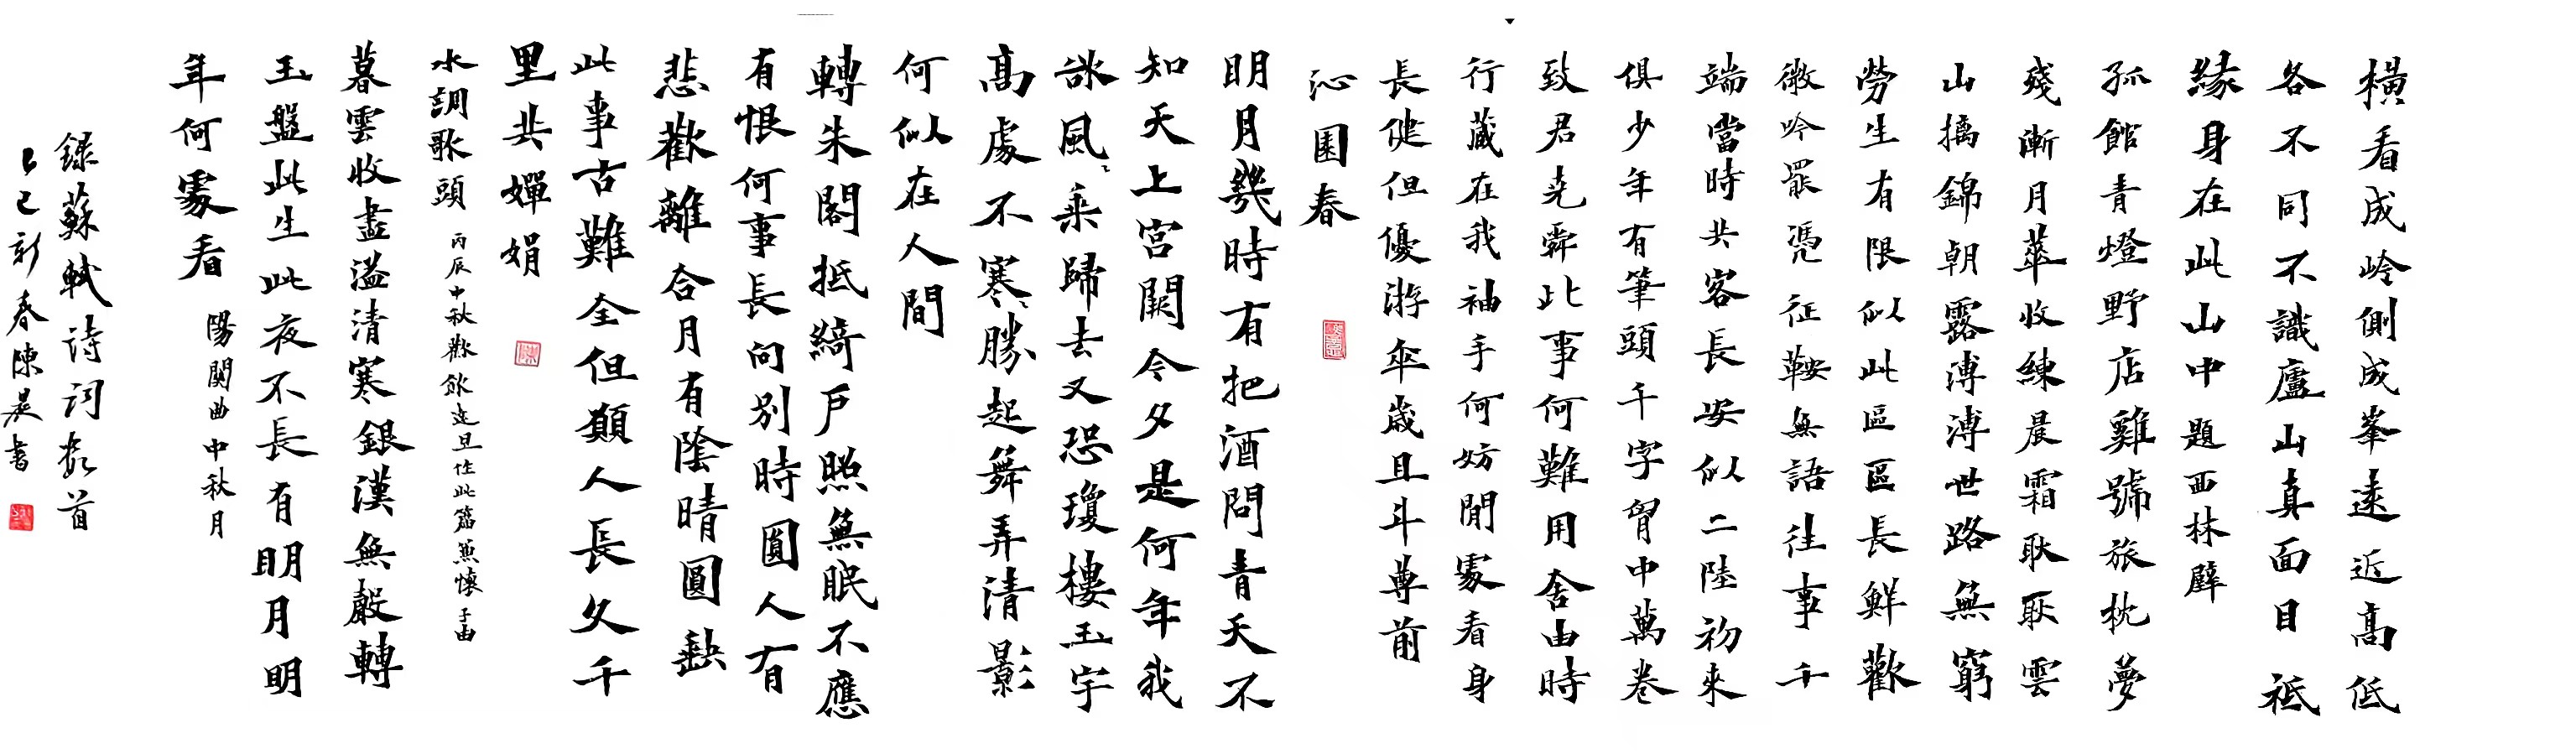 橫看成岭側成峯遠近高低
各不同不識廬山真面目祗
緣身在此山中題西林壁
孤館青燈野店雞號旅枕夢
殘漸月華收練晨霜耿耿雲
山摛錦朝露漙漙世路無窮
勞生有限似此區區長鮮歡
微吟罷凭征鞍無語往事千
端當時共客長安似二陸初來
俱少年有筆頭千字胷中萬卷
致君堯舜此事何難用舍由時
行藏在我袖手何妨閒處看身
長健但優游卒歲且斗尊前
沁園春
明月幾時有把酒問青天不
知天上宮闕今夕是何年我
欲風乘歸去又恐瓊樓玉宇
高處不寒勝起舞弄清影
何似在人間
轉朱閣抵綺戶照無眠不應
有恨何事長向別時圓人有
悲歡離合月有陰晴圓缺
此事古難全但願人長久千
里共嬋娟
水調歌頭 丙辰中秋歡飲达旦作此篇兼懷子由
暮雲收盡溢清寒銀漢無聲轉
玉盤此生此夜不長有明月明
年何處看 陽關曲中秋月
錄蘇軾詩詞數首
乙巳新春陳晨書